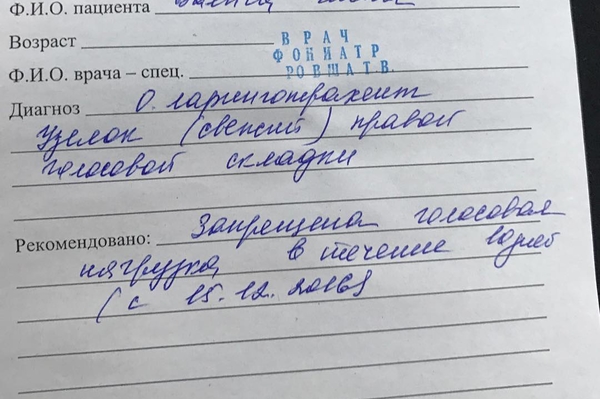 Ф.И.О. пациента
Возраст
ВРАЧ
ФОНИАТР
Ф.И.О. врача – спец.
РОВША Т.В.
Диагноз О. ларинготрахеит
Узелок (свежий) правой
голосовой складки
Рекомендовано: Запрещена голосовая
нагрузка в течение
(с 15.12.2016)